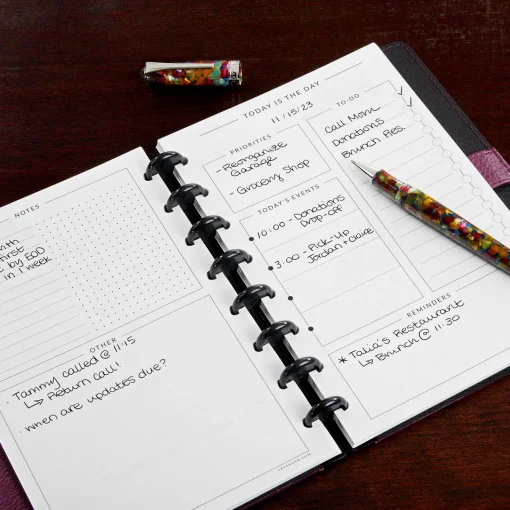 NOTES
by EOD
in 1 week
OTHER
· Tammy called @ 11:15
↳ Return call!
· When are updates due?
LEVENGER.COM
TODAY IS THE DAY
11/15/23
PRIORITIES
- Reorganize
Garage
- Grocery Shop
TODAY'S EVENTS
10:00 - Donations
Drop-off
3:00 - Pick-Up
Jordan + Claire
TO-DO
Call Mom
Donations
Brunch Res.
REMINDERS
* Talia's Restaurant
↳ Brunch @ 11:30